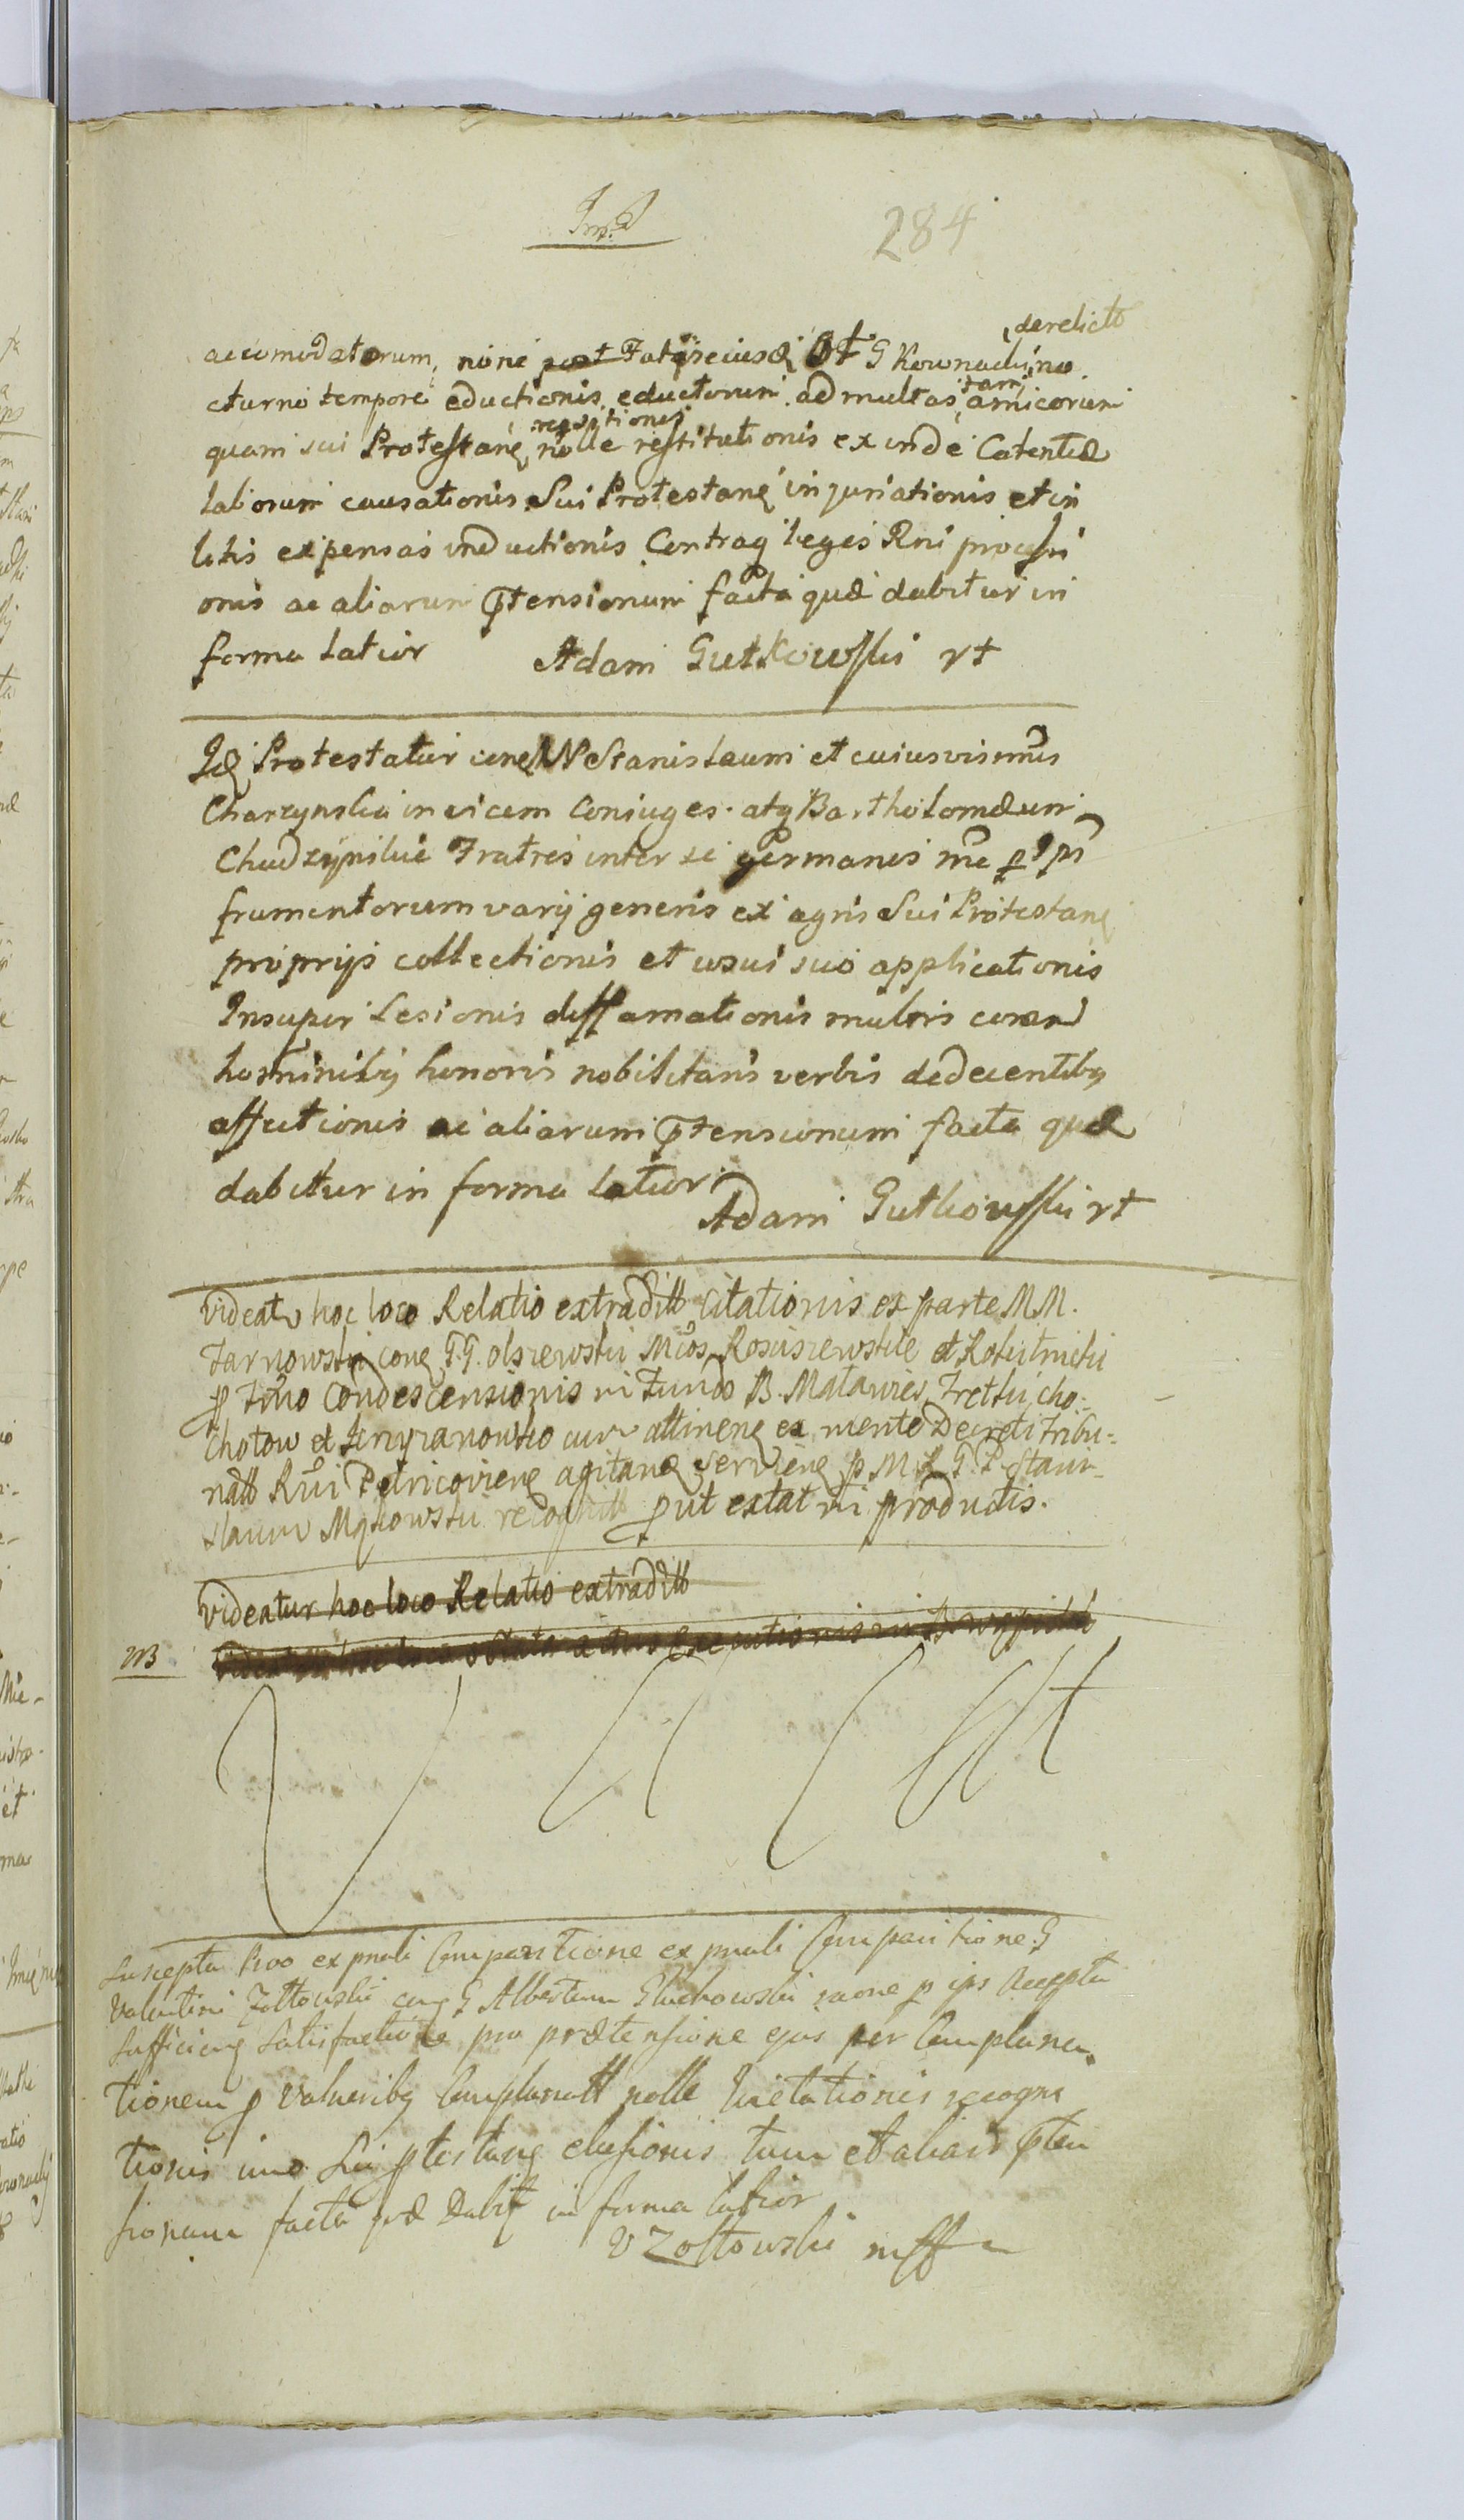 284
derelicto
accomodatorum, none post Fata eiusd Ol G Kownacki, no
cturno tempore eductionis eductorum ad multas tam amicorum
requisitiones
quam sui Protestanę nolle restitutionis exinde Calentiæ
laborum causationis Sui Protestanę injuriationis et in
litis expensas inductionis Contrag leges Rni processi
onis ac aliarum ptensionum facta quæ dabitur in
forma latior Adam Gutkowski rt
Id Protestatur coneͅ NN Stanislaum et cuiusvis nmis
Charzynskie invicem Coniuges. atq Bartholomæum
Chudzynskie Fratres inter se germanes
frumentorum varij generis ex agris Sui Protestanę
proprijs collectionis et usui suo applicationis
Insuper Lesionis diffamationis multis coram
hominibȝ honoris nobilitaris verbis dedecentibȝ
affectionis ac aliarum ptensionum facta quæ
dabitur in forma latior
Adam Gutkowski rt
Videatu hoc loco Relatio extraditto Citationis ex parte MM.
Tarnowski conę G.G. Olszewski Mcos Rosciszewskie et
p Tmo Condescensionis in Fundo B. Malawies, Fretki, cho-
chotow et attinenę ex mente Decreti Tribu-
natto Rni Petricovienę agitanę servienę p M G. P. Stani-
slaum recognitto put extat in productis.
Videatur hoc loco Relatio extraditto
NB
Suscepta Proo ex pnali Comparitione ex pnali Comparitione G
Valentini Zołtowski conę G Albertum Głuchowski raone p ips Accepta
sufficienę Satisfactione pro prætensione ejus per Complana
tionem p vulneribȝ Complanatt nolle quietationis recogni
tionis imo Sui ptestanę elusionis tum et aliar pten
sionum facta quæ Dabit in forma latior
V Zołtowski mffa